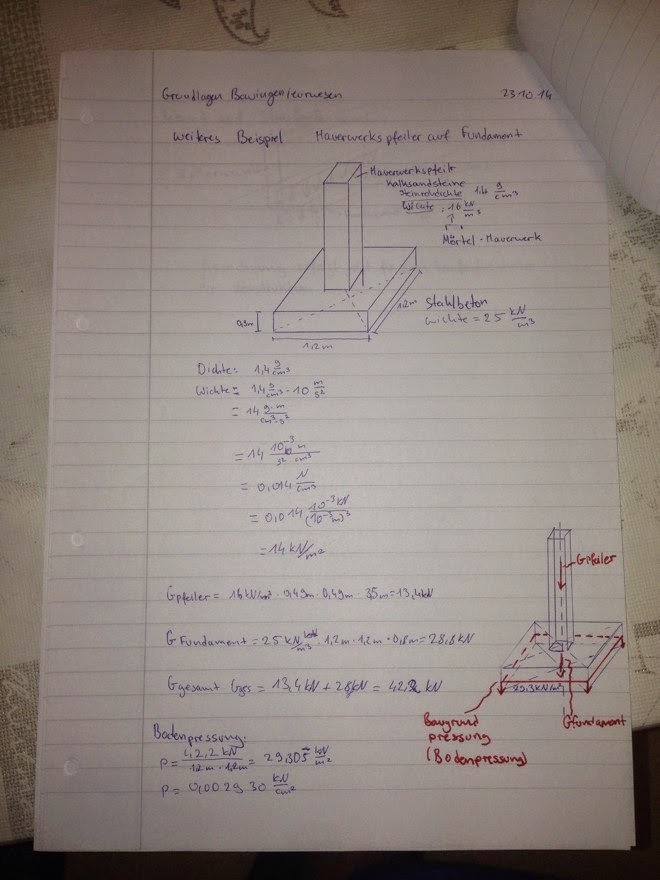 Grundlagen Bauingenieurwesen 23.10.14
weiteres Beispiel Mauerwerkspfeiler auf Fundament
Mauerwerkspfeiler
Kalksandsteine
Steinrohdichte 1,4 g/cm³
Wichte = 16 kN/m³
Mörtel + Mauerwerk
Stahlbeton
Wichte = 25 kN/m³
1,2m
1,2m
Dichte = 1,4 g/cm³
Wichte = 1,4 g/cm³ · 10 m/s²
= 14 g·m/cm³·s²
= 14 10⁻³ m/s²·cm³
= 0,014 N/cm³
= 0,014 10⁻³ kN/(10⁻³ m)³
= 14 kN/m²
GPfeiler = 16 kN/m³ · 0,49m · 0,49m · 3,5m = 13,4kN
GFundament = 25 kN/m³ · 1,2m · 1,2m · 0,8m = 28,8kN
Ggesamt Gges = 13,4kN + 28,8kN = 42,2 kN
Bodenpressung:
p = 42,2 kN/1,2m · 1,2m = 29,305 kN/m²
p = 0,002930 kN/cm²
GPfeiler
29,3kN/m²
GFundament
Baugrund
pressung
(Bodenpressung)